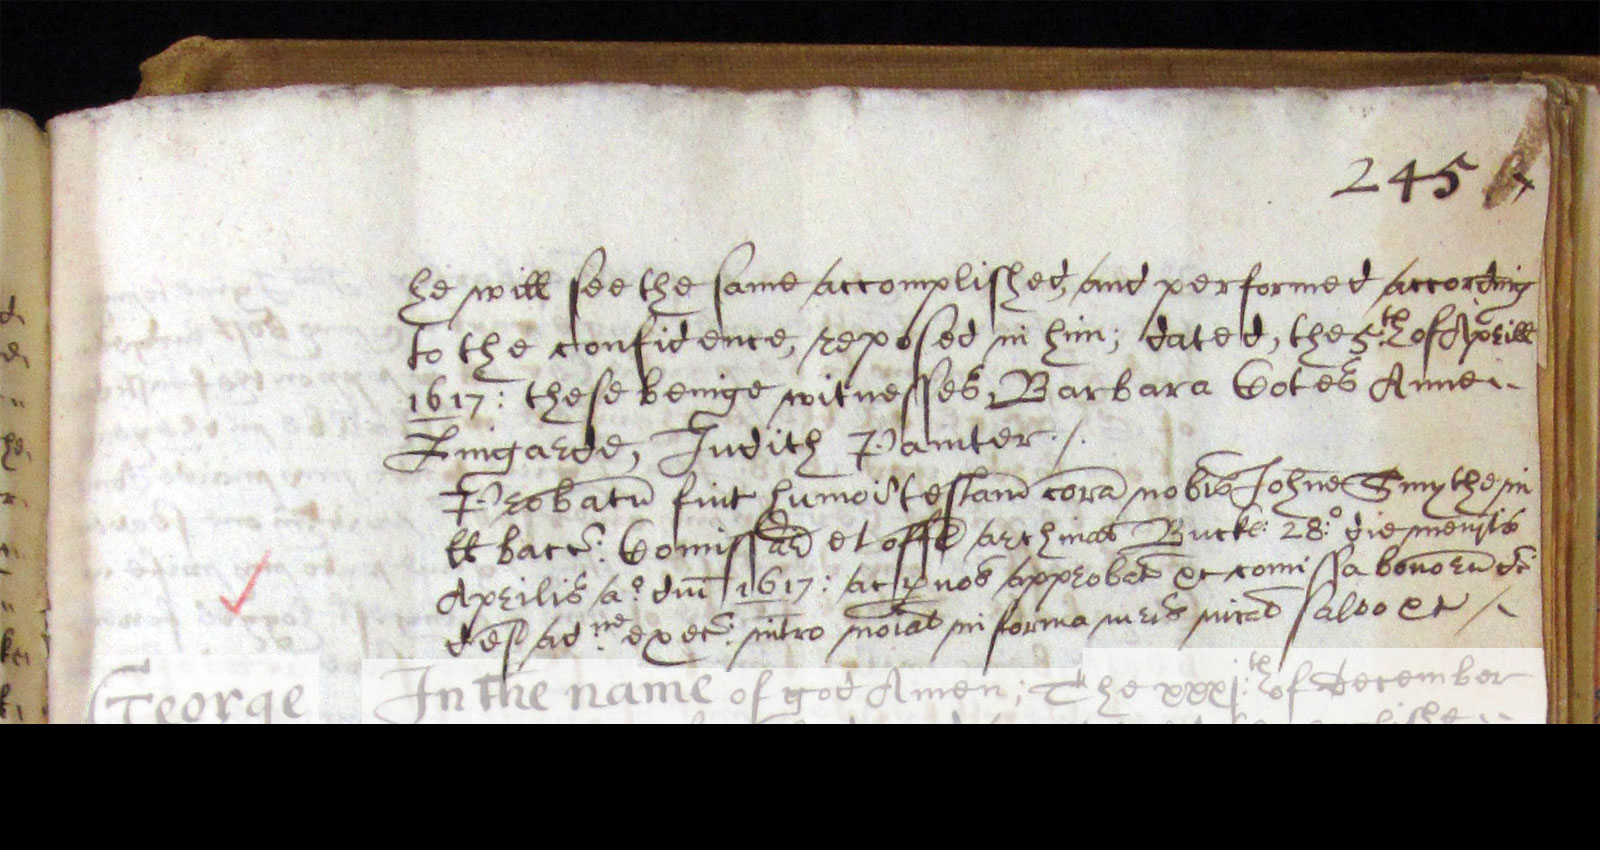 245
he will see the same accomplished, and performed according
to the confidence, reposed in him; dated, the 5:th of Aprill
1617: these beinge witnesses, Barbara Cotes Anne
Lingarde, Judith Painter ./.
Probatū fuit humoi testam̄ corā nobis Johne Smythe in
ll bacc: Comissar et offic archinat Buck: 28:o die mensis
Aprilis ao. dni 1617: ac p nos approbat et comissa bonorū dc
def ad:ne exec: intro noiat in forma iuris iurat salvo et
George In the name of god Amen; The xxxj:th of december